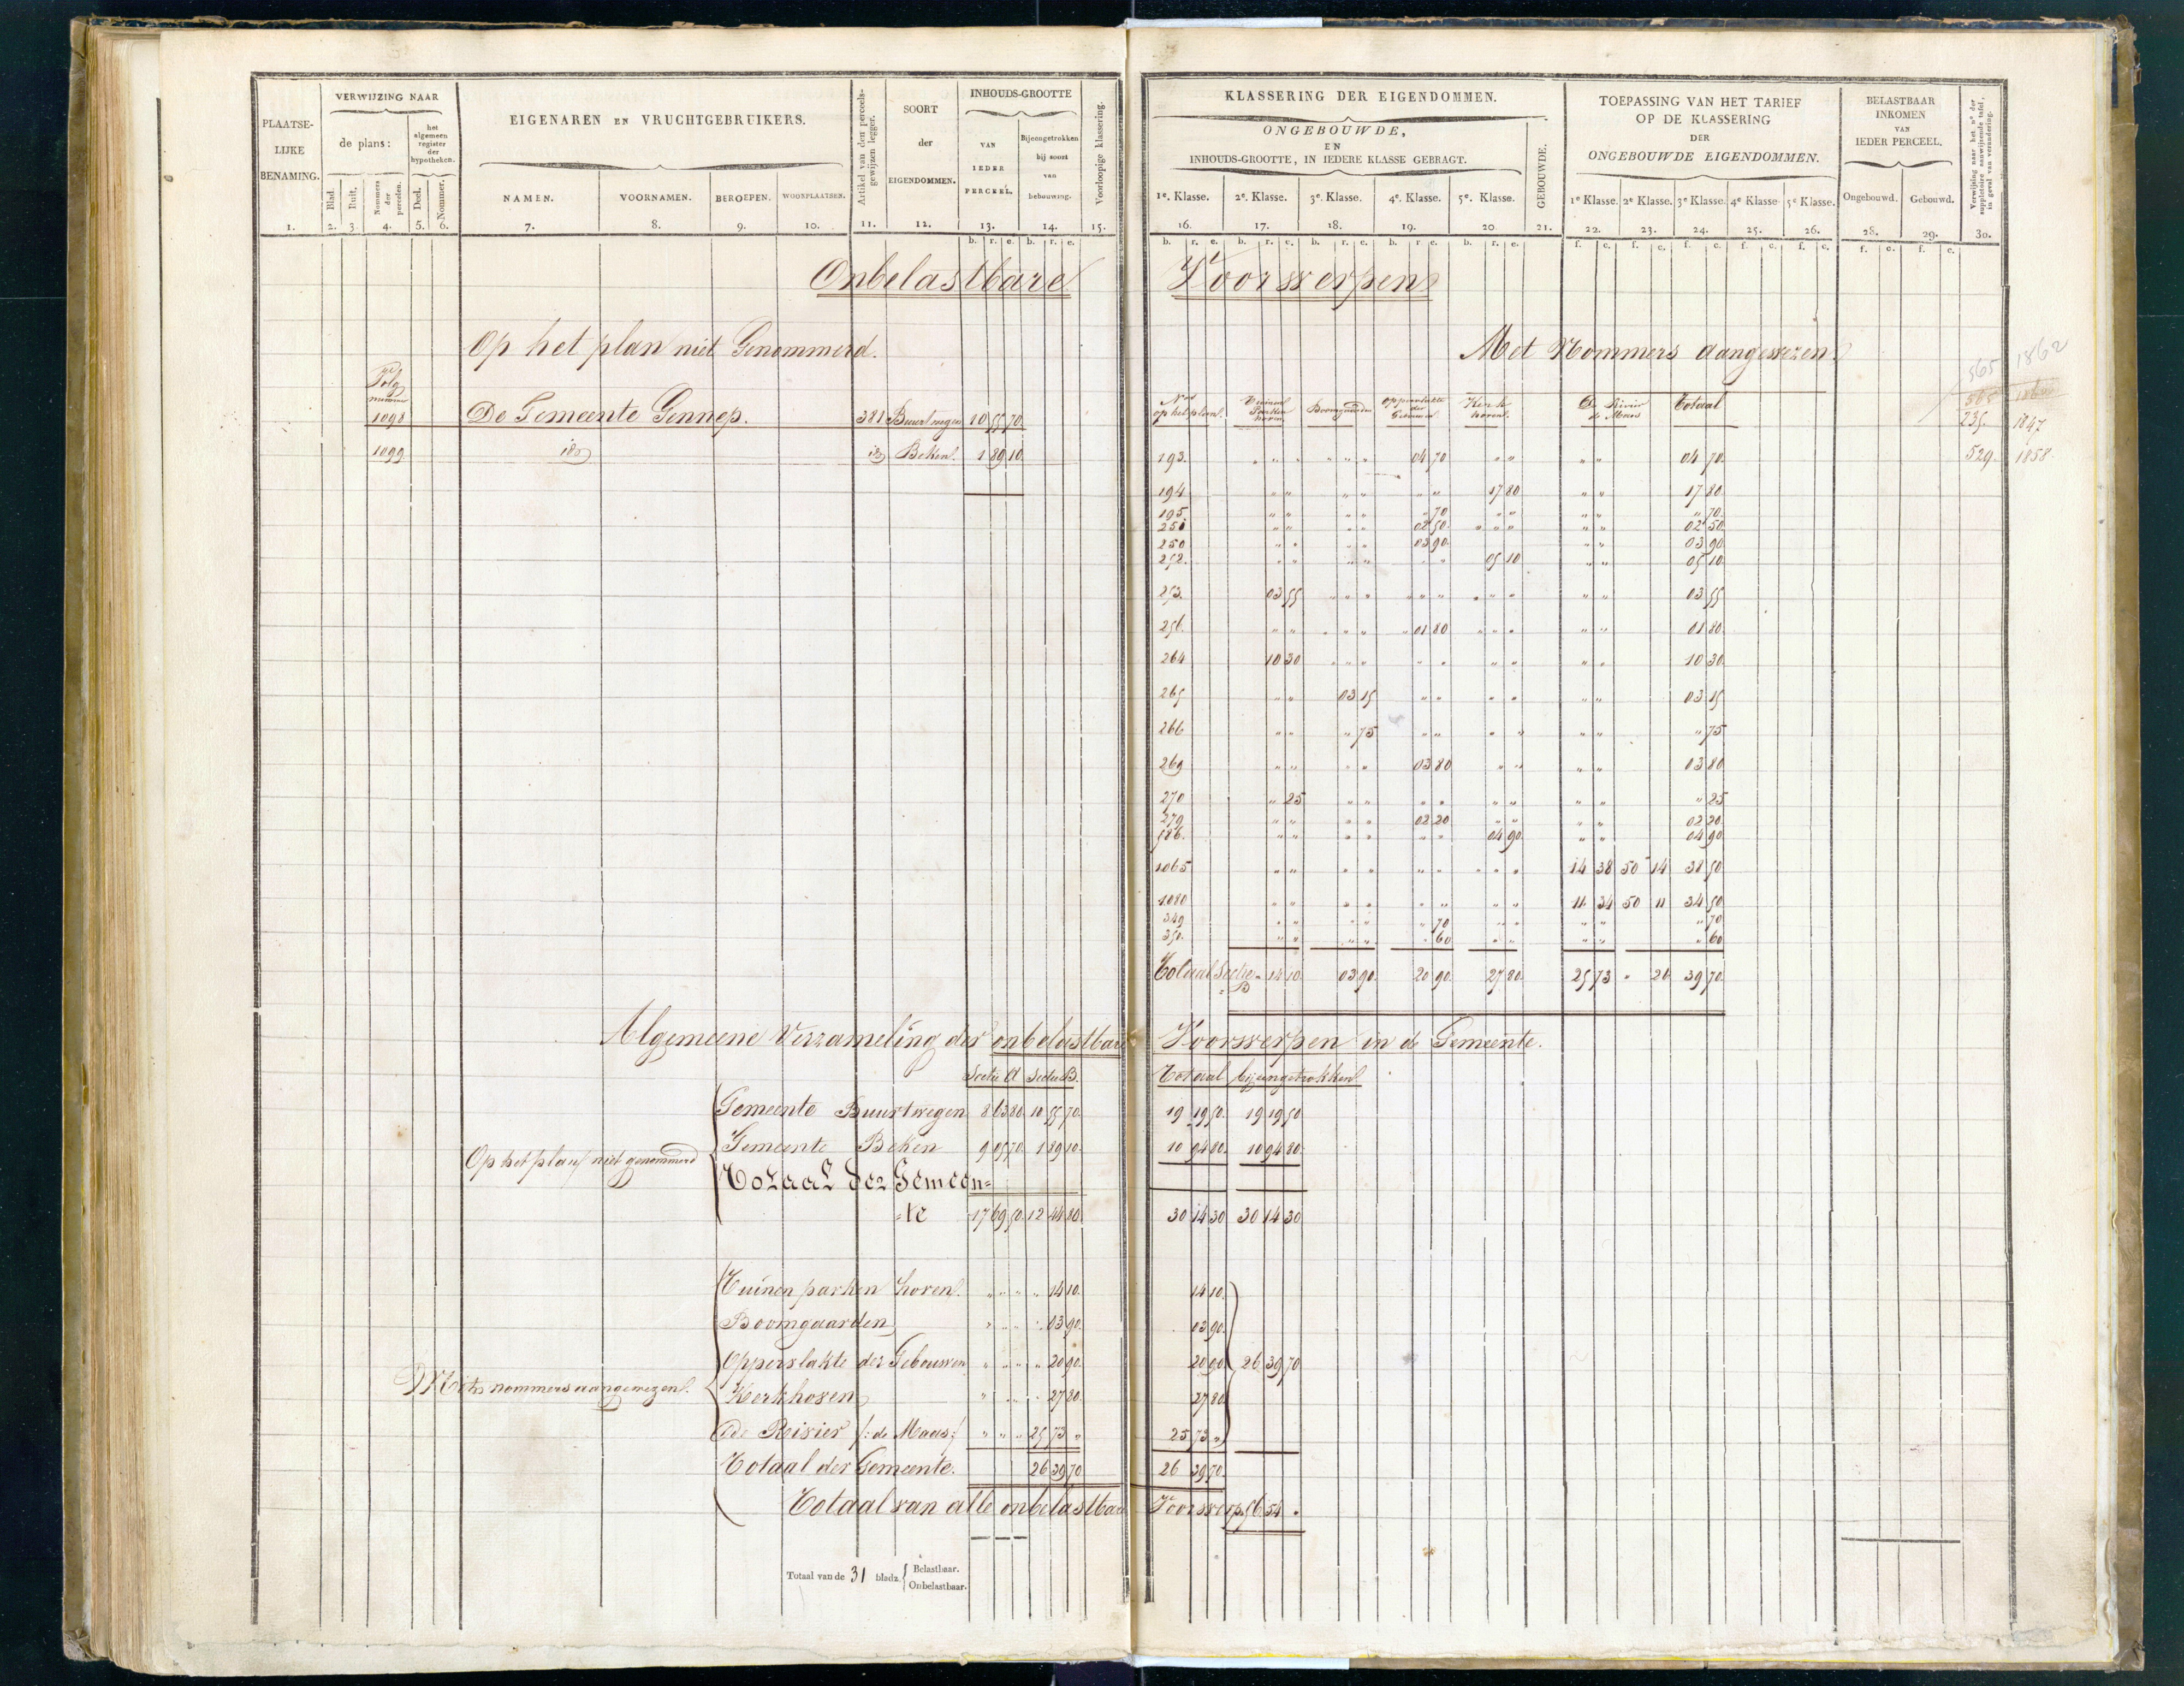 PLAATSE-
LIJKE
BENAMING.
1.
VERWIJZING NAAR
de plans:
het
algemeen
register
der
hypotheken.
Blad.
Ruit.
Nomers
der
perceelen.
Deel.
Nommer.
2. 3. 4. 5. 6.
EIGENAREN EN VRUCHTGEBRUIKERS.
NAMEN. VOORNAMEN. BEROEPEN. WOONPLAATSEN.
7. 8. 9. 10.
Artikel van den perceels-
gewijzen legger.
11.
SOORT
der
EIGENDOMMEN.
12.
INHOUDS-GROOTTE
VAN
IEDER
PERCEEL.
13.
Bijeengetrokken
bij soort
van
bebouwing.
14.
Voorloopige klassering.
15.
b. r. e. b. r. e.
Onbelastbare
Op het plan niet Genommerd.
Volg
nummer
1098 De Gemeente Gennep. 381 Buurtwegen 10 55 70
1099 id id Beken 1 89 10
Algemeene Verzameling der onbelastbare
Sectie A Sectie B.
Op het plan niet genommerd
Gemeente Buurtwegen 8 63 80 10 55 70
Gemeente Beken 9 05 70 1 89 10
Totaal der Gemeen=
=te 17 69 50 12 44 80
Met nommers aangewezen.
Tuinen parken hoven. " " " " 14 10
Boomgaarden " " " " 03 90
Oppervlakte der Gebouwen " " " " 20 90
Kerkhoven " " " " 27 80
De Rivier /: de Maas :/ " " " 25 73 "
Totaal der Gemeente. 26 39 70
Totaal van alle onbelastbare
Totaal van de 31 bladz.
Belastbaar.
Onbelastbaar.
KLASSERING DER EIGENDOMMEN.
ONGEBOUWDE,
EN
INHOUDS-GROOTTE, IN IEDERE KLASSE GEBRAGT.
1e. Klasse. 2e. Klasse. 3e. Klasse. 4e. Klasse. 5e. Klasse.
16. 17. 18. 19. 20.
GEBOUWDE.
21.
TOEPASSING VAN HET TARIEF
OP DE KLASSERING
DER
ONGEBOUWDE EIGENDOMMEN.
1e Klasse. 2e Klasse. 3e Klasse. 4e Klasse. 5e Klasse.
22. 23. 24. 25. 26.
BELASTBAAR
INKOMEN
VAN
IEDER PERCEEL.
Ongebouwd. Gebouwd.
28. 29.
Verwijzing naar het no. der
suppletoire aanwijzende tafel,
in geval van verandering.
30.
b. r. e. b. r. e. b. r. e. b. r. e. b. r. e. f. c. f. c. f. c. f. c. f. c. f. c. f. c.
Voorwerpen
Met Nommers Aangewezen
565 1862
565 1860
235. 1847
529. 1858
Nos
op het plan.
Tuinen
Parken
hoven
Boomgaarden
Oppervlakte
der
Gebouwen
Kerk
hoven.
De Rivier
de Maas
Totaal
193. " " " " " " 04 70 " " " " 04 70
194 " " " " " " 17 80 " " 17 80
195. " " " " " 70 " " " " " 70
251 " " " " 02 50 " " " " " 02 50
250 " " " " 03 90 " " 03 90
252. " " " " " " 05 10 " " 05 10
253. 03 55 " " " " " " " " " " " 03 55
256. " " " " " " 01 80 " " " " " 01 80
264 10 30 " " " " " " " " " 10 30
265 " " 03 15 " " " " " " 03 15
266 " " " 75 " " " " " " " 75
269 " " " " 03 80 " " " " 03 80
270 " 25 " " " " " " " " " 25
279 " " " " 02 20 " " " " 02 20
586. " " " " " " 04 90 " " 04 90
1065 " " " " " " " " " 14 38 50 14 38 50
1080 " " " " " " " " 11 34 50 11 34 50
349 " " " " " 70 " " " " " 70
350. " " " " " 60 " " " " " 60
Totaal Sectie B 14 10 03 90. 20 90. 27 80. 25 73 " 26 39 70.
Voorwerpen in de Gemeente.
Totaal bijeengetrokken.
19 19 50. 19 19 50
10 94 80. 10 94 80
30 14 30 30 14 30
14 10.
03 90.
20 90 26 39 70
27 80
25 73 "
26 39 70
Voorwerp. 56 54 "